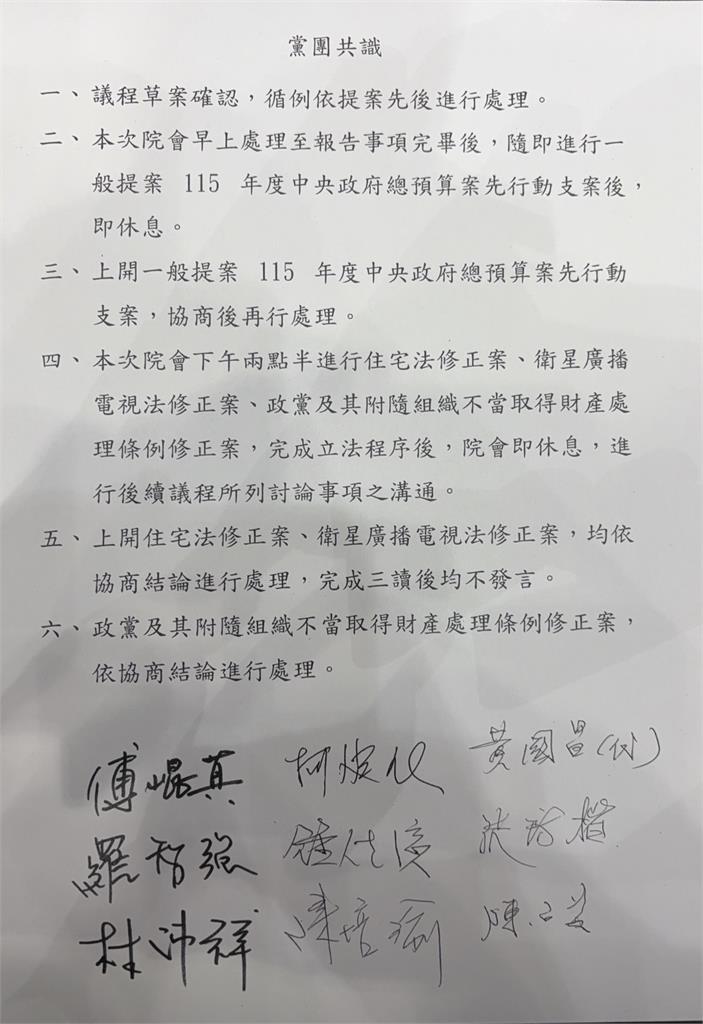 黨團共識
一、議程草案確認，循例依提案先後進行處理。
二、本次院會早上處理至報告事項完畢後，隨即進行一
般提案 115 年度中央政府總預算案先行動支案後，
即休息。
三、上開一般提案 115 年度中央政府總預算案先行動
支案，協商後再行處理。
四、本次院會下午兩點半進行住宅法修正案、衛星廣播
電視法修正案、政黨及其附隨組織不當取得財產處
理條例修正案，完成立法程序後，院會即休息，進
行後續議程所列討論事項之溝通。
五、上開住宅法修正案、衛星廣播電視法修正案，均依
協商結論進行處理，完成三讀後均不發言。
六、政黨及其附隨組織不當取得財產處理條例修正案，
依協商結論進行處理。
傅崐萁 黃國昌
羅智強 鍾佳濱
林沛祥 陳培瑜